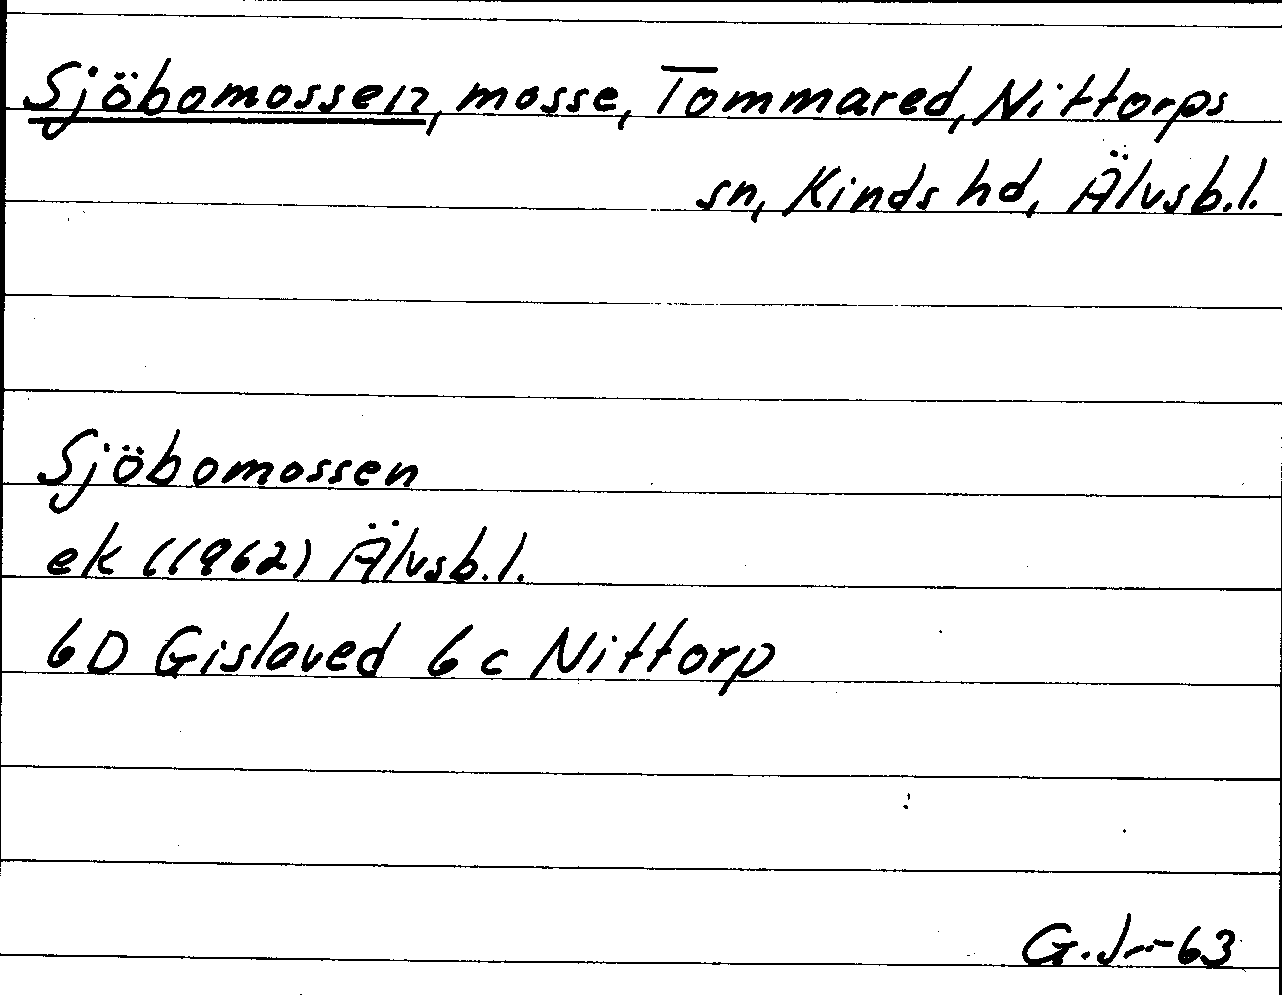 Sjöbomossen, mosse, Tommared, Nittorps
sn, Kinds hd, Älvsb.l.
Sjöbomossen
ek (1962) Älvsb.l.
6D Gislaved 6c Nittorp
G.Jr-63